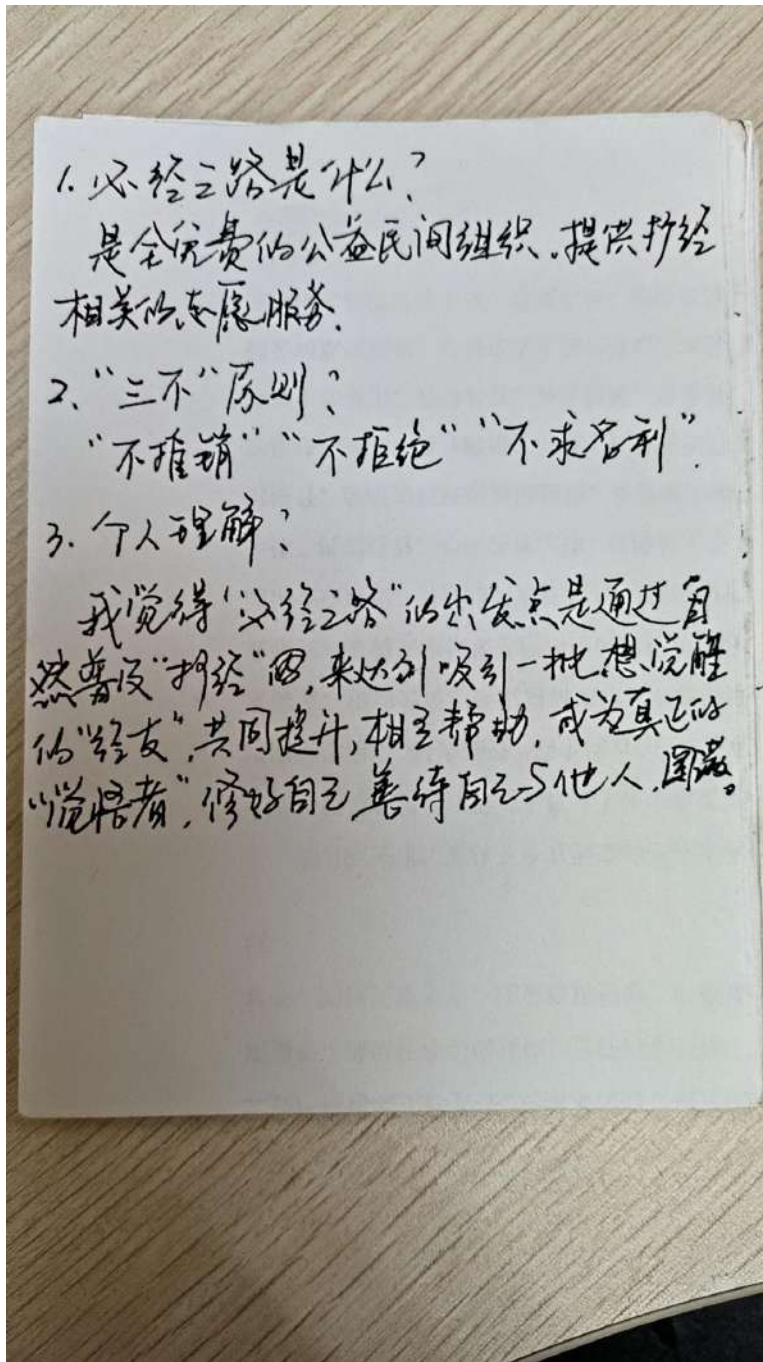 1. 必经之路是什么?
是全免费的公益民间组织。提供抄经
相关的志愿服务.
2、“三不”原则?
“不推销” “不拒绝” “不求名利”.
3. 个人理解?
我觉得“必经之路”的出发点是通过自
然普及“抄经”, 来达到吸引一批想觉醒
的“经友”, 共同提升, 相互帮助, 成为真正的
“觉悟者”, 修好自己, 善待自己与他人, 圆满。